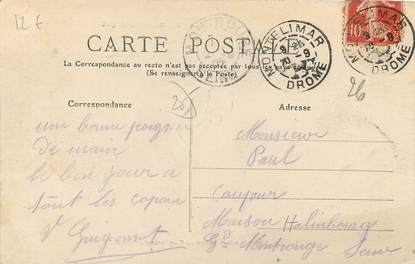 12 €
CARTE POSTALE
La Correspondance au recto n'est pas acceptée par tous les
(Se renseigner à la Poste)
MONTELIMAR
DROME
MONTELIMAR
DROME
10
Correspondance
Adresse
26
26
une bonne poignée
de main
le bonjour a
tout les copains
Monsieur
Paul
Maison
Gd Montrouge Seine